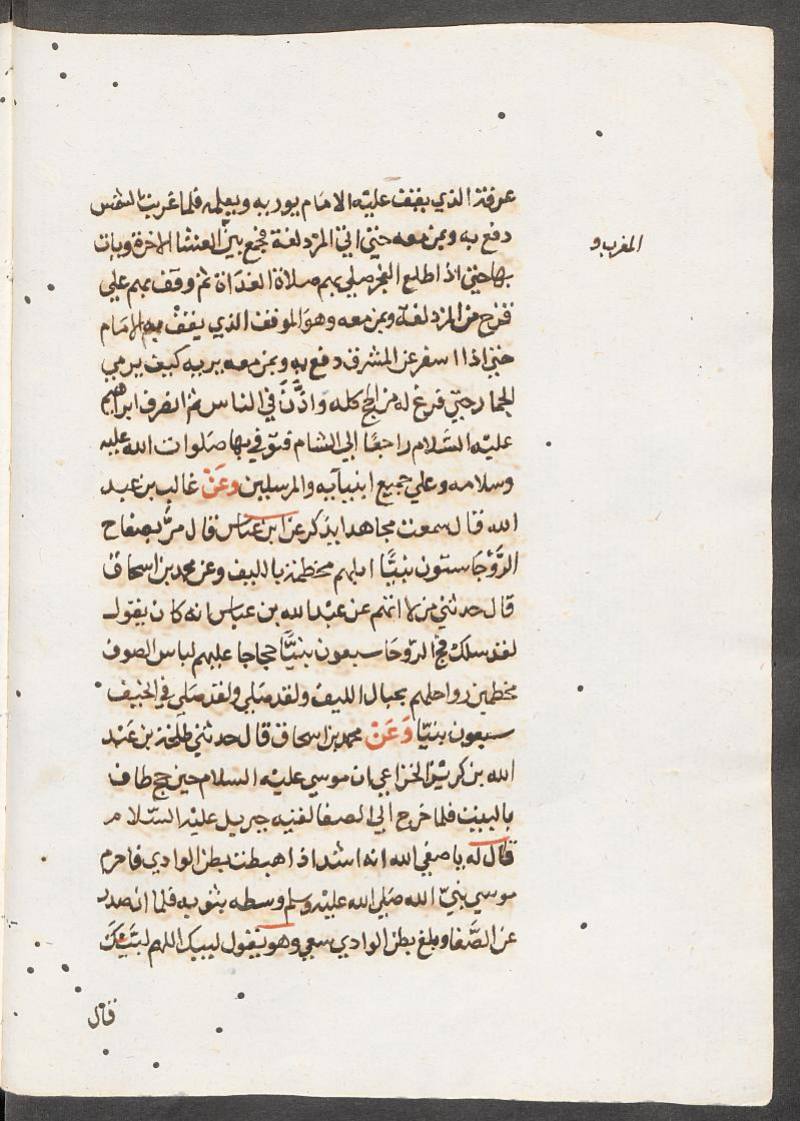 عرفة الذي يقف عليه الامام يوريه ويعلمه فلما غربت الشمس
المغرب و
دفع به وبمن معه حتى اتي المزدلفة فجمع بين العشا الاخرة وبات
بها حتى اذا طلع الفجر صلي بهم صلاة الغداة ثم وقف بهم علي
قزح من المزدلفة وبمن معه وهو الموقف الذي يقف به الامام
حتى اذا اسفر عن المشرق دفع به وبمن معه يريه كيف يرمي
الجمار حتي فرغ له من الحج كله واذَّن في الناس ثم انصرف ابراهيم
عليه السَّلام راجعًا الي الشام فتوفي بها صَلوات الله عليه
وسلامه وعلي جميع انبيآيه والمرسلين وعَنْ غالب بن عبد
الله قال سمعت مجاهدا يذكر عن ابن عباس قال مرَّ بصفاح
الرَّوْحَا ستون نبيًّا ابلهم مخطمة بالليف وعن محمد بن اسحاق
قال حدثني من لا اتهم عن عبد الله بن عباس انه كان يقول
لقد سلك فج الروحا سبعون نبيًّا حجاجا عليهم لباس الصوف
مخطمين رواحلهم بحبال الليف ولقد صَلي ولقد صَلي في الخيف
سبعون نبيّا وَعَنْ محمد بن اسحاق قال حدثني طلحة بن عَبْد
الله بن كريز الخزاعي ان موسي عليه السلام حين حج طاف
بالبيت فلما خرج الي الصفا لقيه جبريل عليه السّلام
قال له يا صفي الله انه اشد اذا هبطت بطن الوادي فاحزم
موسي نبيّ الله صَلي الله عليه وسلم وسطه بثوبه فلما انحدر
عن الصَّفا وبلغ بطن الوادي سعي وهو يقول لبيك اللهم لبَّيْكَ
قال